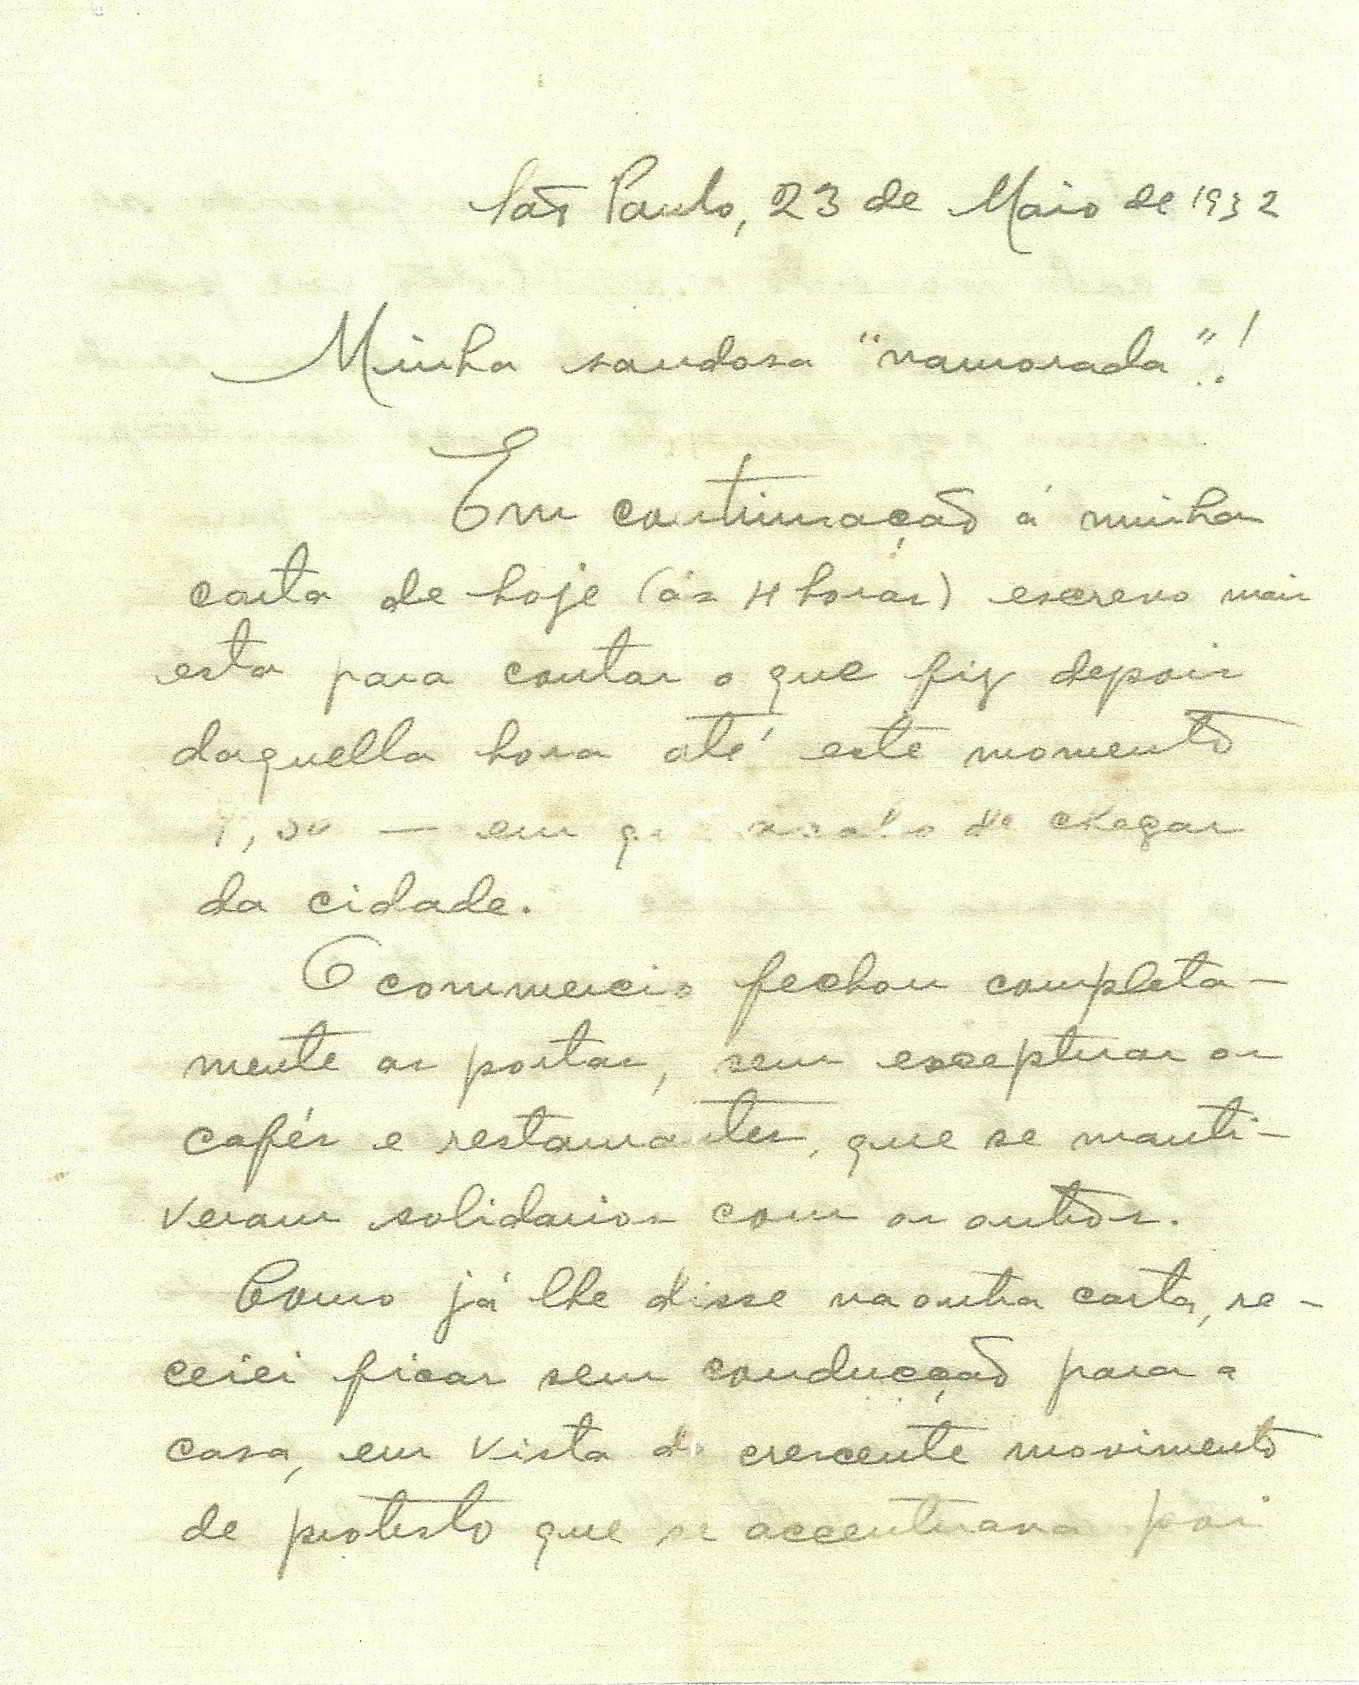 São Paulo, 23 de Maio de 1932
Minha saudosa "namorada"!
Em continuação á minha
carta de hoje (ás 4 horas) escrevo mais
esta para contar o que fiz depois
daquella hora até este momento
— em que acabo de chegar
da cidade.
O commercio fechou completa-
mente as portas, sem exceptuar os
cafés e restaurantes, que se manti-
veram solidarios com os outros.
Como já lhe disse na outra carta, re-
ceiei ficar sem conducção para a
casa, em vista do crescente movimento
de protesto que se accentuava pois